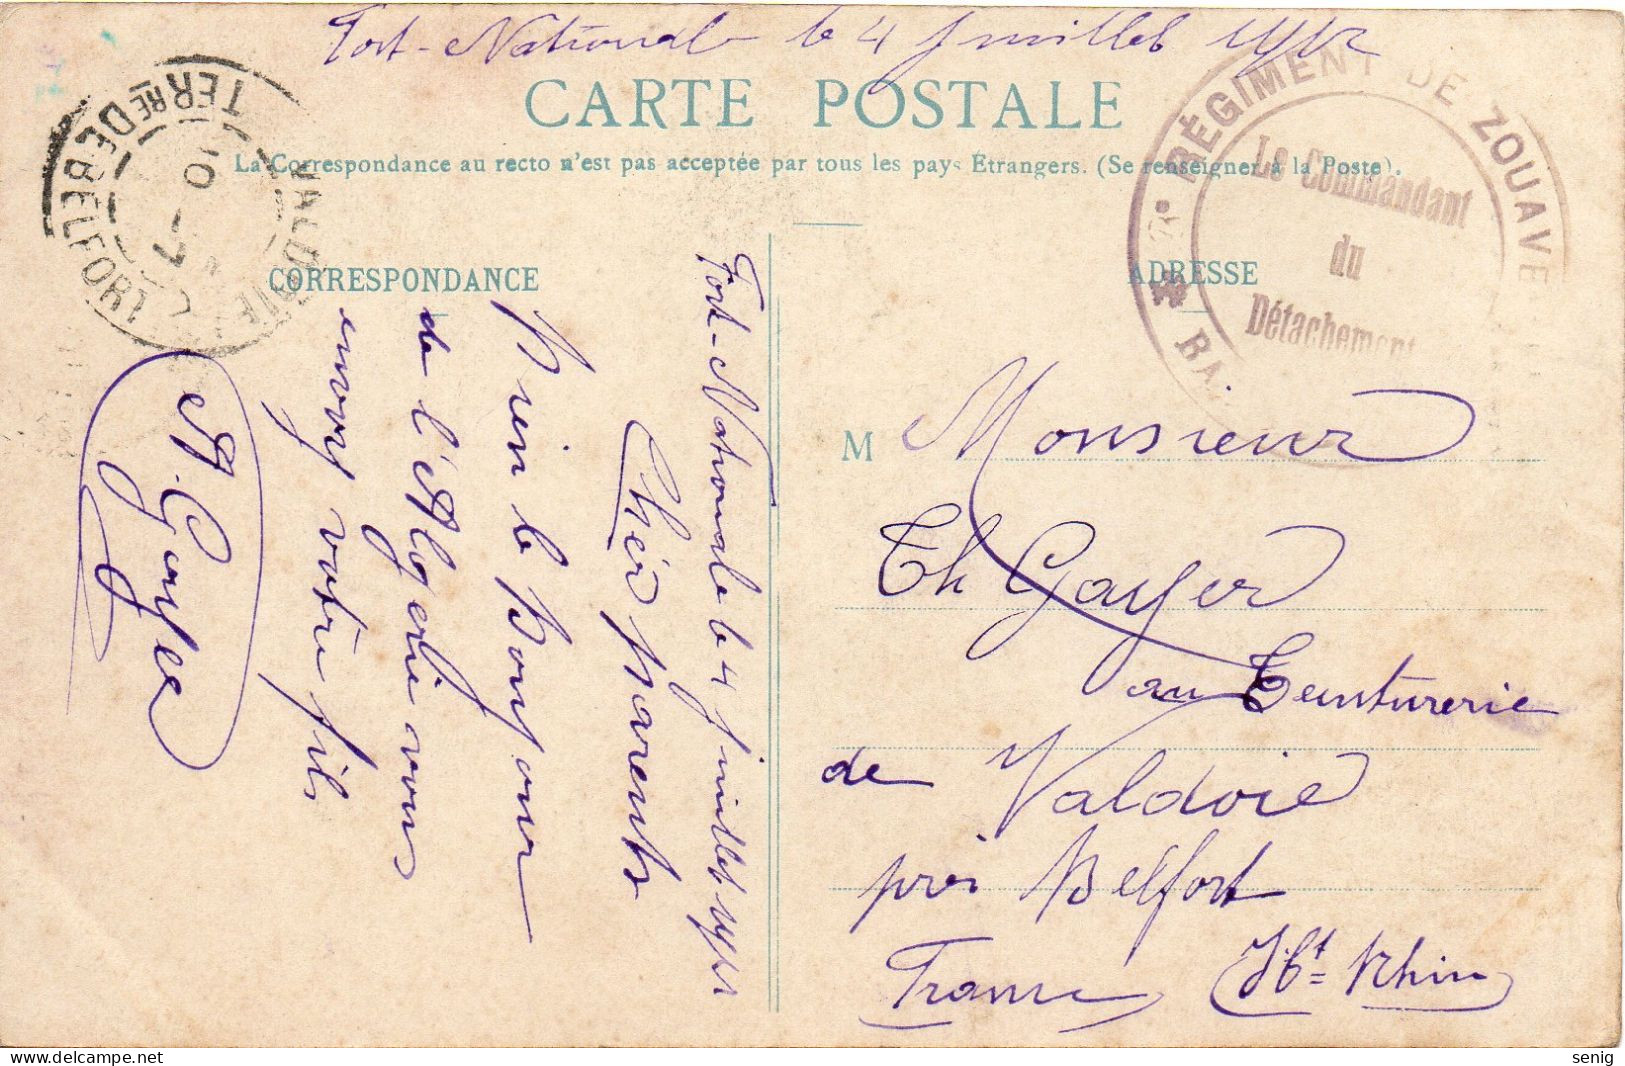 Fort-National le 4 Juillet 1912
CARTE POSTALE
La Correspondance au recto n'est pas acceptée par tous les pays Etrangers. (Se renseigner à la Poste).
CORRESPONDANCE
ADRESSE
RÉGIMENT DE ZOUAVE
Le Commandant
du
Détachement
VALDOIE
TERRE DE BELFORT
10 - 7
Fort-Nationale le 4 Juillet 1912
Cher parents
Rien le Bonjour
de l'Algerie vous
envoy votre fils
A. Gayer
M Monsieur
Th Gayer
au Teinturerie
de Valdoie
près Belfort
France Ht Rhin
senig